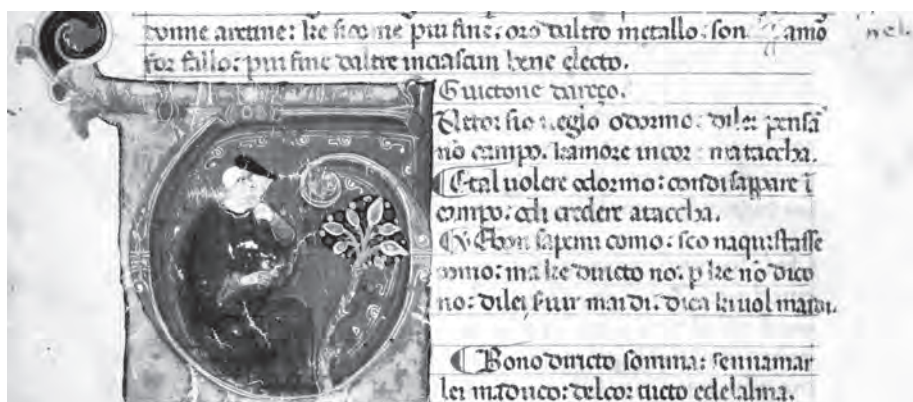 tonne aretine: ke sicome piu fine: oro daltro metallo: son amo
for fallo: piu fine daltre inciascun bene electo.
nel.
Guictone dareço.
sio ueglo odormo: dilei pensã
nõ campo. kamore incor mataccha.
Etal uolere odormo: condisappare ĩ
campo: odi credere ataccha.
Ebon sapemi como: seo naquistasse
omo: ma ke diricto no: p ke nõ dico
no: dilei kiuol
Bono diricto somma: sennamar
lei maduco: delcor tucto edelalma.